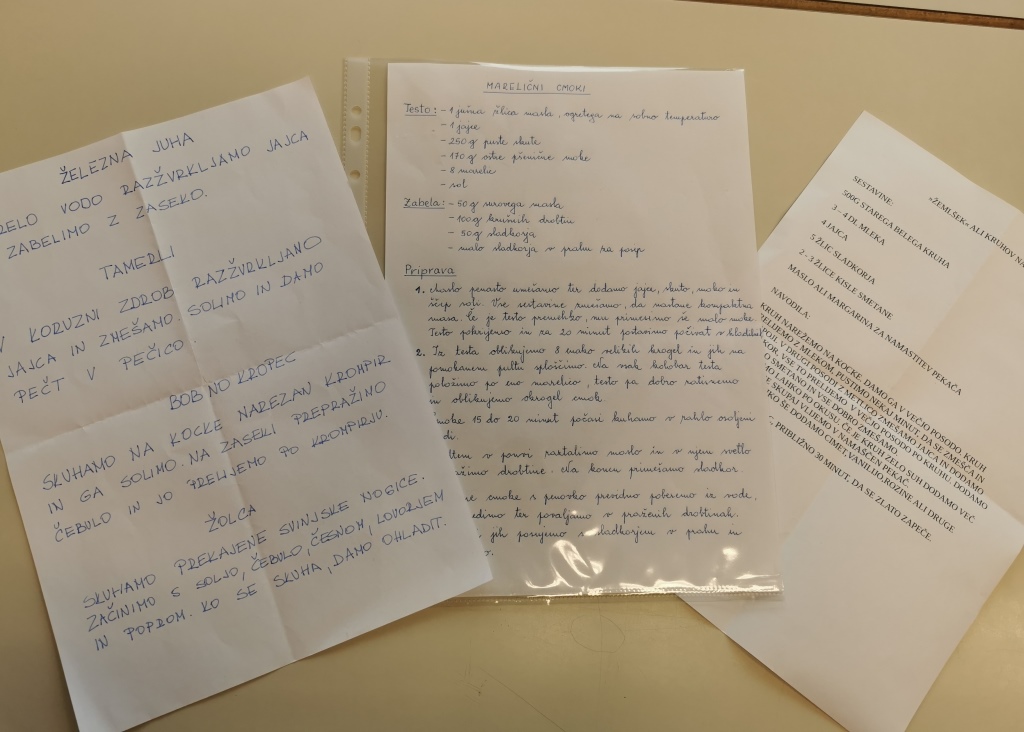 ŽELEZNA JUHA
VODO RAZŽVRKLJAMO JAJCA
ZABELIMO Z ZASEKO.
TAMERLI
V KORUZNI ZDROB RAZŽVRKLJANO
JAJCA IN ZMEŠAMO. SOLIMO IN DAMO
PEČT V PEČICO.
BOB NO KROPEC
SKUHAMO NA KOCKE NAREZAN KROMPIR
IN GA SOLIMO. NA ZASEKI PREPRAŽIMO
ČEBULO IN JO PRELIJEMO PO KROMPIRJU.
ŽOLCA
SKUHAMO PREKAJENE SVINJSKE NOGICE.
ZAČINIMO S SOLJO, ČEBULO, ČESNOM, LOVORJEM
IN POPROM. KO SE SKUHA, DAMO OHLADIT.
MARELIČNI CMOKI
Testo: - 1 jušna žlica masla, ogretega na sobno temperaturo
- 1 jajce
- 250 g puste skute
- 170 g ostre pšenične moke
- 8 marelic
- sol
Zabela: - 50 g surovega masla
- 100 g krušnih drobtin
- 50 g sladkorja
- malo sladkorja v prahu za posip
Priprava
1. Maslo penasto umešamo ter dodamo jajce, skuto, moko in
ščep soli. Vse sestavine zmešamo, da nastane kompaktna
masa. Če je testo premehko, mu primešamo še malo moke.
Testo pokrijemo in za 20 minut postavimo počivat v hladilnik
2. Iz testa oblikujemo 8 enako velikih krogel in jih na
pomokanem pultu sploščimo. Na vsak kolobar testa
položimo po eno marelico, testo pa dobro zatisnemo
in oblikujemo okrogel cmok.
15 do 20 minut počasi kuhamo v rahlo osoljeni
v ponvi raztalimo maslo in v njem svetlo
drobtine. Na koncu primešamo sladkor.
cmoke s penovko previdno poberemo iz vode,
ter povaljamo v praženih drobtinah.
jih posujemo s sladkorjem v prahu in
»ŽEMLŠEK« ALI KRUHOV
SESTAVINE:
500G STAREGA BELEGA KRUHA
3 – 4 DL MLEKA
4 JAJCA
5 ŽLIC SLADKORJA
2 - 3 ŽLICE KISLE SMETANE
MASLO ALI MARGARINA ZA NAMASTITEV PEKAČA
NAVODILA:
KRUH NAREŽEMO NA KOCKE, DAMO GA V VEČJO POSODO. KRUH
PRELIJEMO Z MLEKOM, PUSTIMO NEKAJ MINUT, DA SE ZMEŠČA IN
V DRUGI POSODI Z METLICO ZMEŠAMO JAJCA IN DODAMO
VSE TO PRELIJEMO V VEČJO POSODO PO KRUHU. DODAMO
SMETANO IN VSE DOBRO ZMEŠAMO.
LAHKO PO OKUSU, ČE JE KRUH ZELO SUH DODAMO VEČ
SKUPAJ VLIJEMO V NAMAŠČEN PEKAČ.
SE DODAMO CIMET, VANILIJO, ROZINE ALI DRUGE
PRIBLIŽNO 30 MINUT, DA SE ZLATO ZAPEČE.